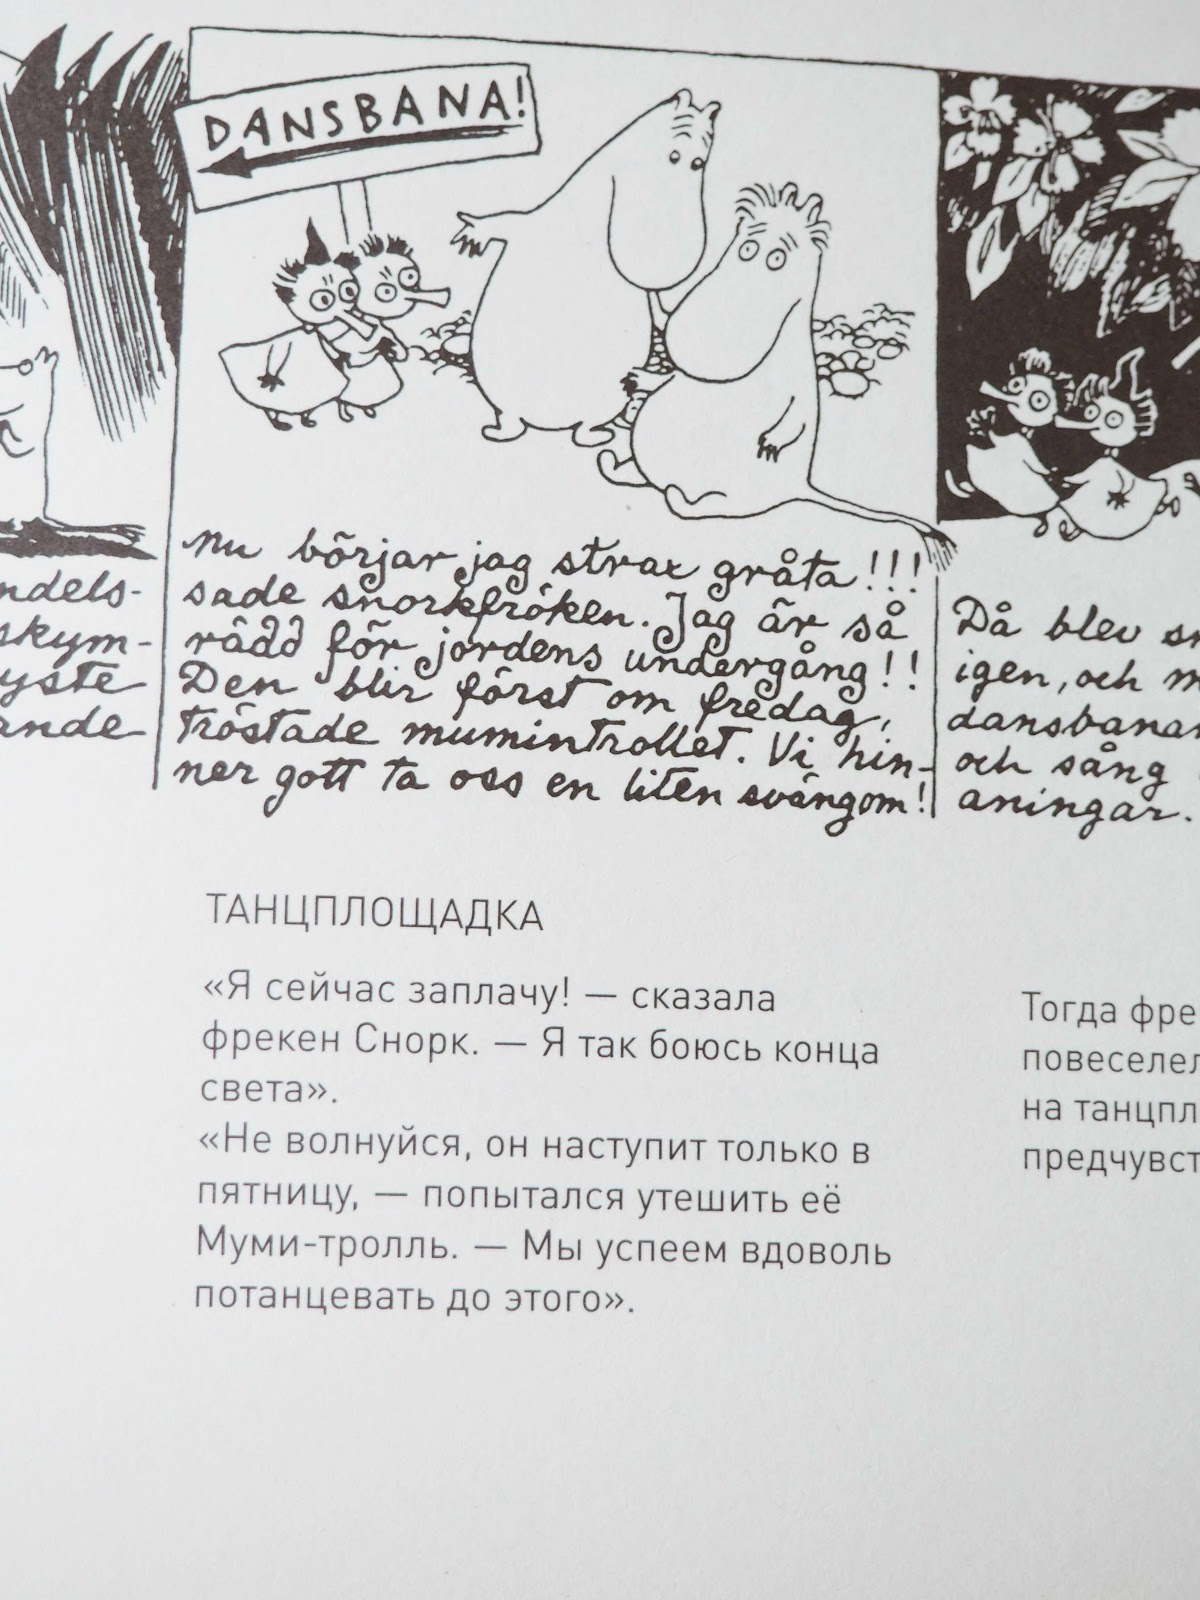 DANSBANA!
ndels-
skym-
yste
ande
nu börjar jag strax gråta!!!
sade snorkfröken. Jag är så
rädd för jordens undergång!!
Den blir först om fredag,
tröstade mumintrollet. Vi hin-
ner gott ta oss en liten svängom!
Då blev sn
igen, och m
dansbanan
och sång
aningar.
ТАНЦПЛОЩАДКА
«Я сейчас заплачу! — сказала
фрекен Снорк. — Я так боюсь конца
света».
«Не волнуйся, он наступит только в
пятницу, — попытался утешить её
Муми-тролль. — Мы успеем вдоволь
потанцевать до этого».
Тогда фре
повеселел
на танцпл
предчувст